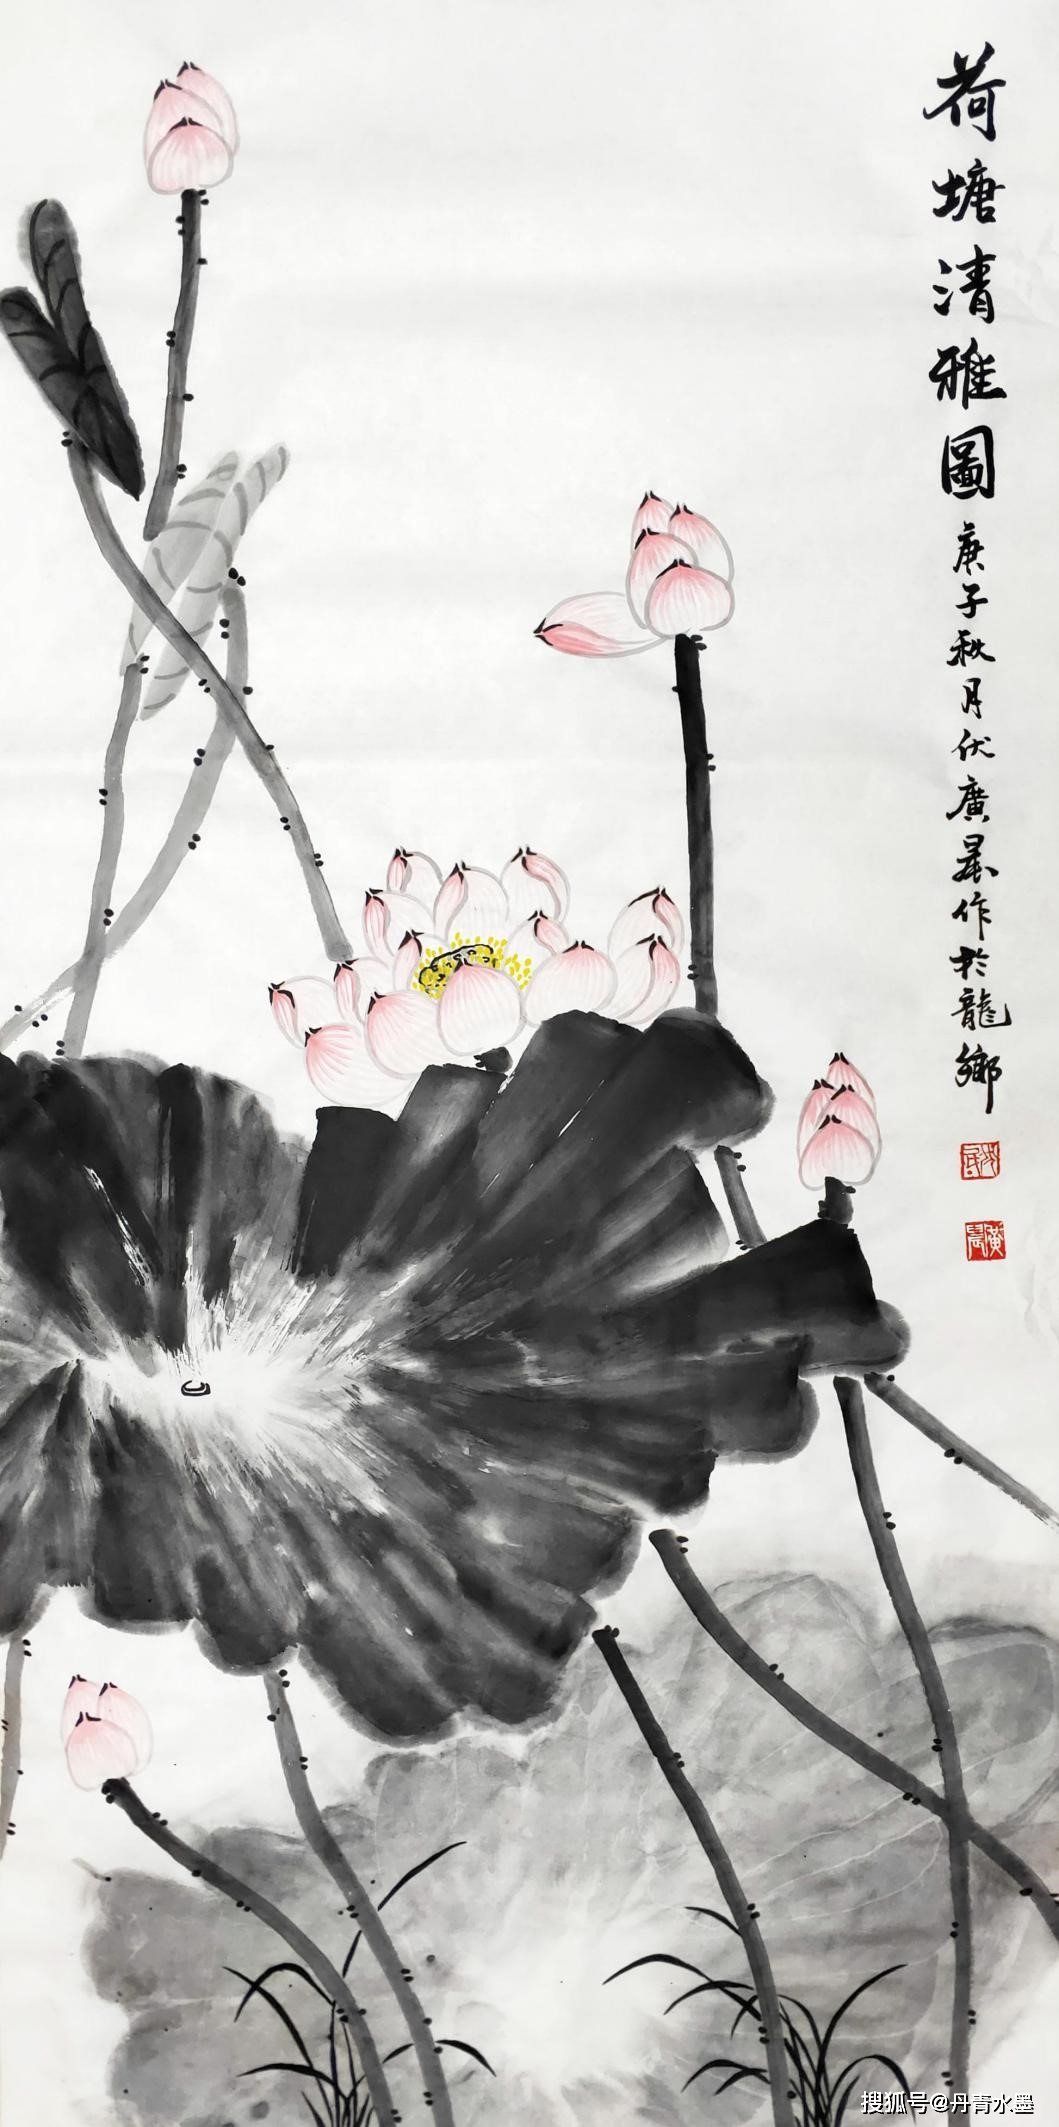 荷塘清雅圖
庚子秋月伏廣晨作於龍鄉
廣晨
搜狐号@丹青水墨